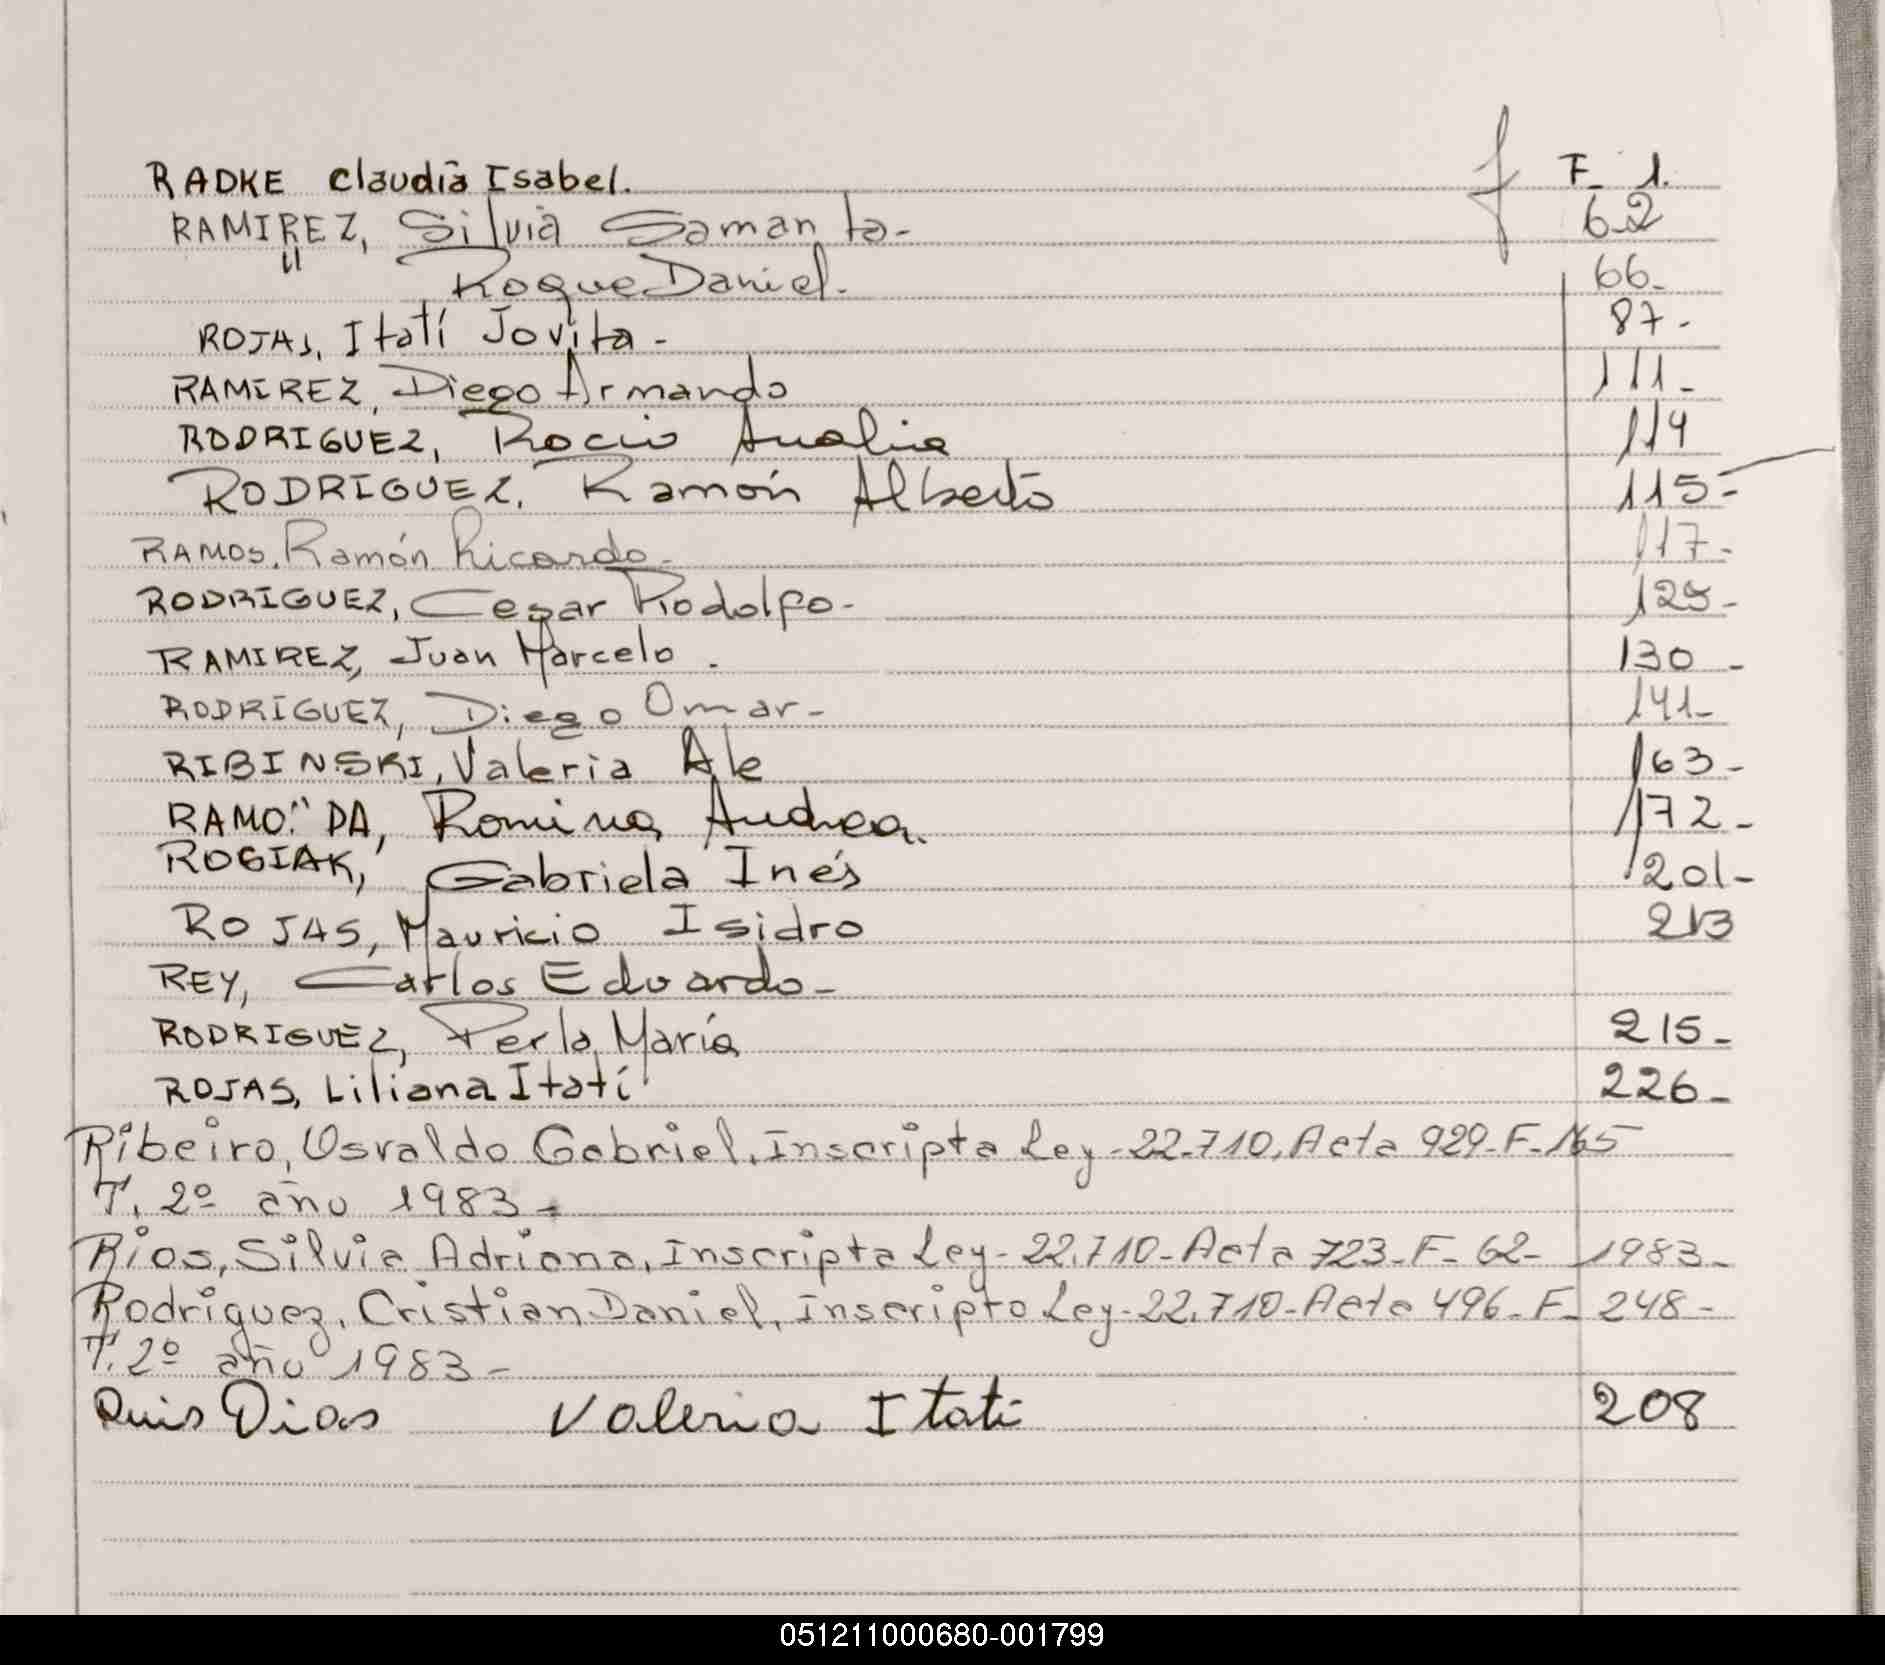 RADKE Claudia Isabel. F. 1.
RAMIREZ, Silvia Samanta- 62
" Roque Daniel. 66-
ROJAS, Itatí Jovita- 87-
RAMIREZ, Diego Armando 111-
RODRIGUEZ, Rocio Analia 114
RODRIGUEZ, Ramón Alberto 115-
RAMOS, Ramón Ricardo- 117-
RODRIGUEZ, Cesar Rodolfo- 129-
RAMIREZ, Juan Marcelo. 130-
RODRIGUEZ, Diego Omar- 141-
RIBINSKI, Valeria Ale 163-
RAMO"DA, Romina Andrea. 172-
ROGIAK, Gabriela Inés 201-
ROJAS, Mauricio Isidro 213
REY, Carlos Eduardo-
RODRIGUEZ, Perla María 215-
ROJAS, Liliana Itatí 226-
Ribeiro, Osvaldo Gabriel, Inscripta Ley-22.710, Acta 929-F-165
T. 2º año 1983-
Rios, Silvia Adriana, Inscripta Ley-22.710-Acta 723-F-62- 1983-
Rodriguez, Cristian Daniel, inscripto Ley-22.710-Acta 496-F- 248-
T. 2º año 1983-
Ruis Dias Valeria Itati 208
051211000680-001799